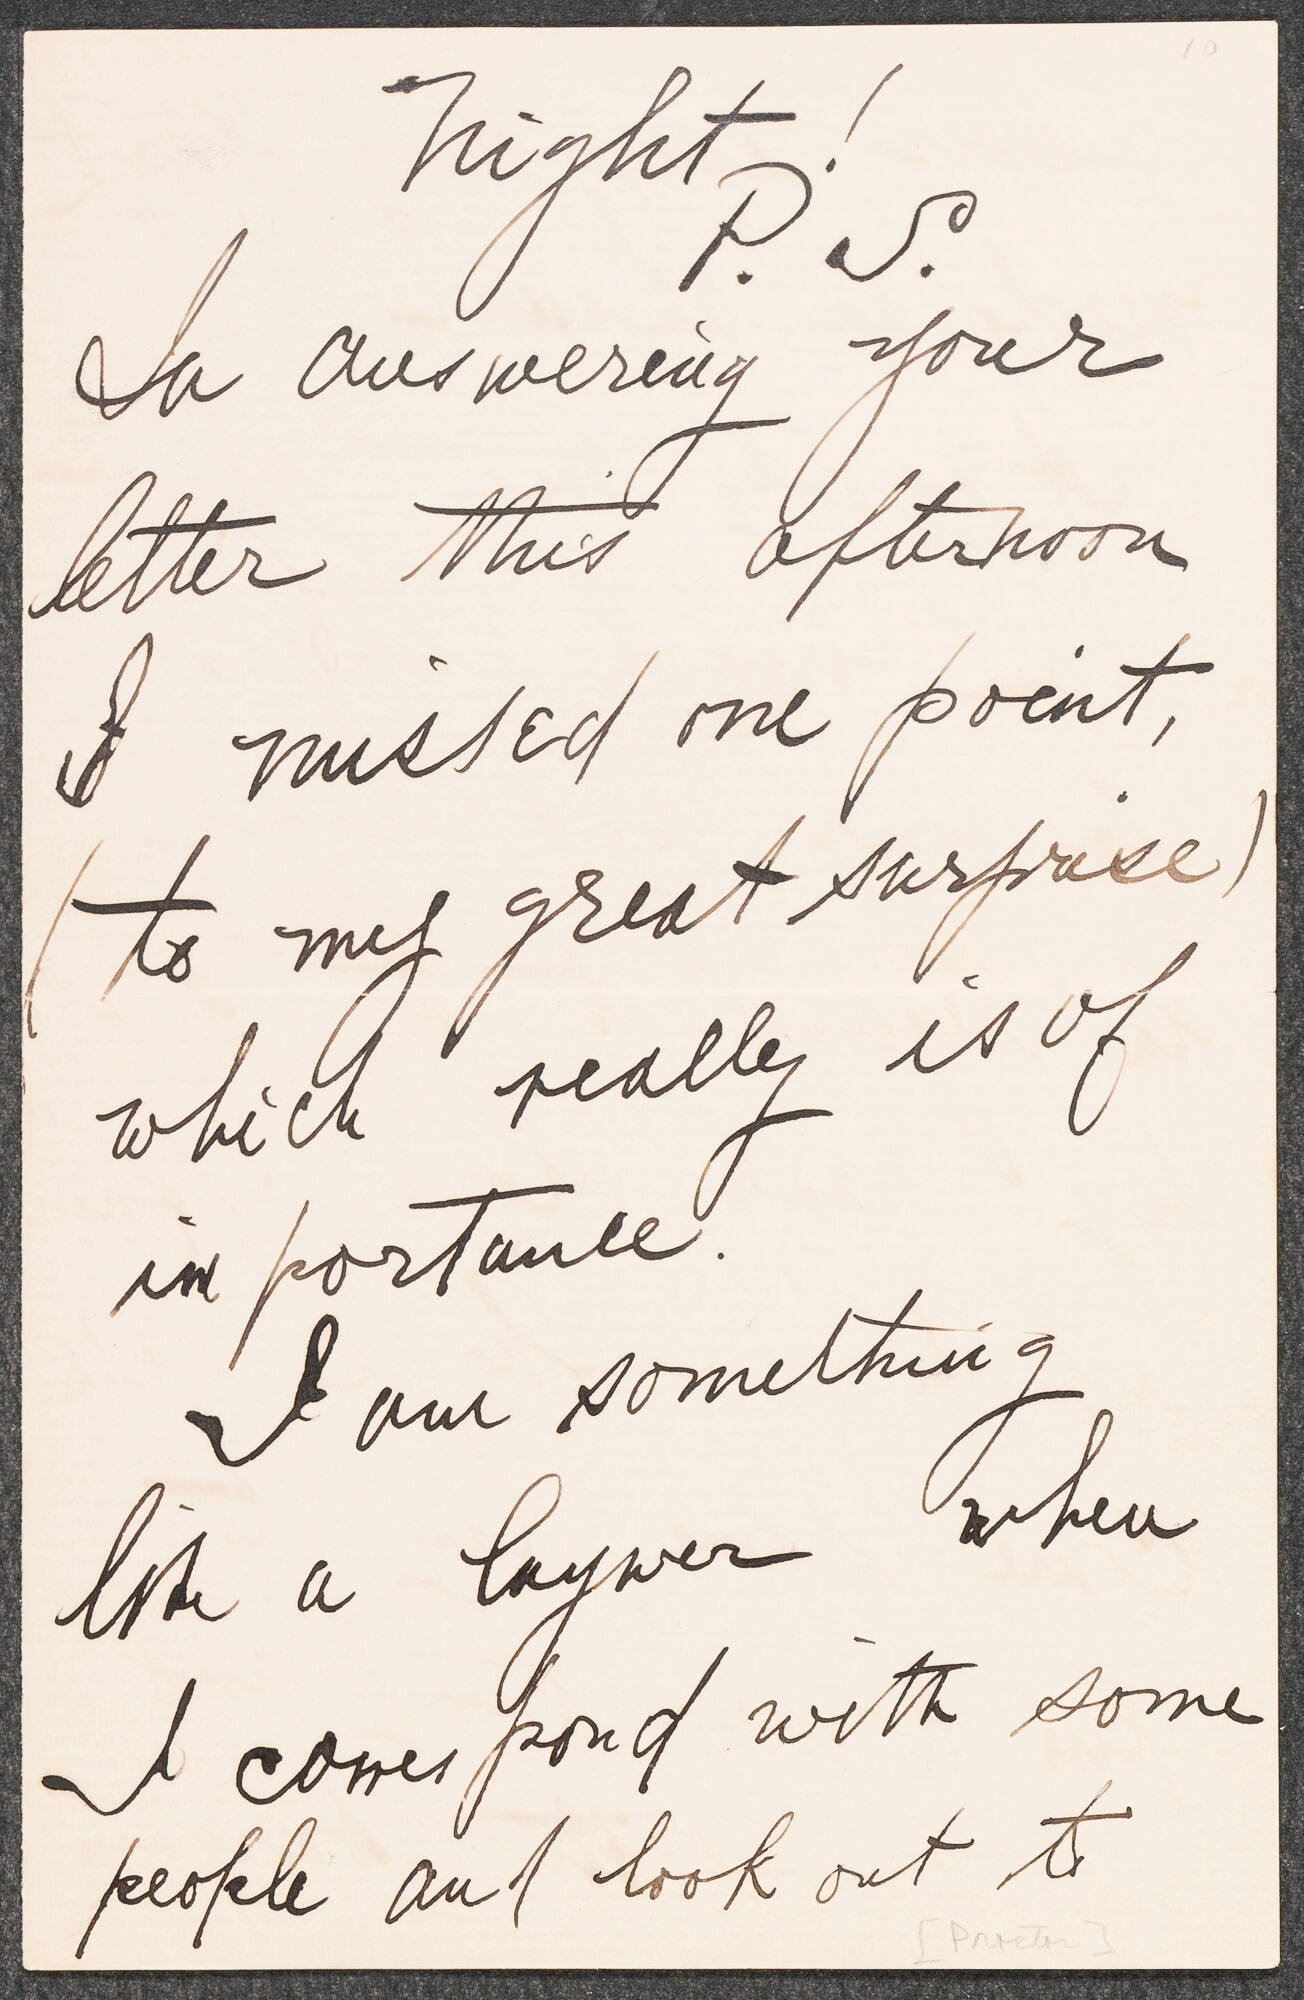 10
Night!
P. S.
In answering your
letter this afternoon
I missed one point,
(to my great surprise)
which really is of
importance.
I am something
like a laywer when
I correspond with some
people and look out to
[Proctor]